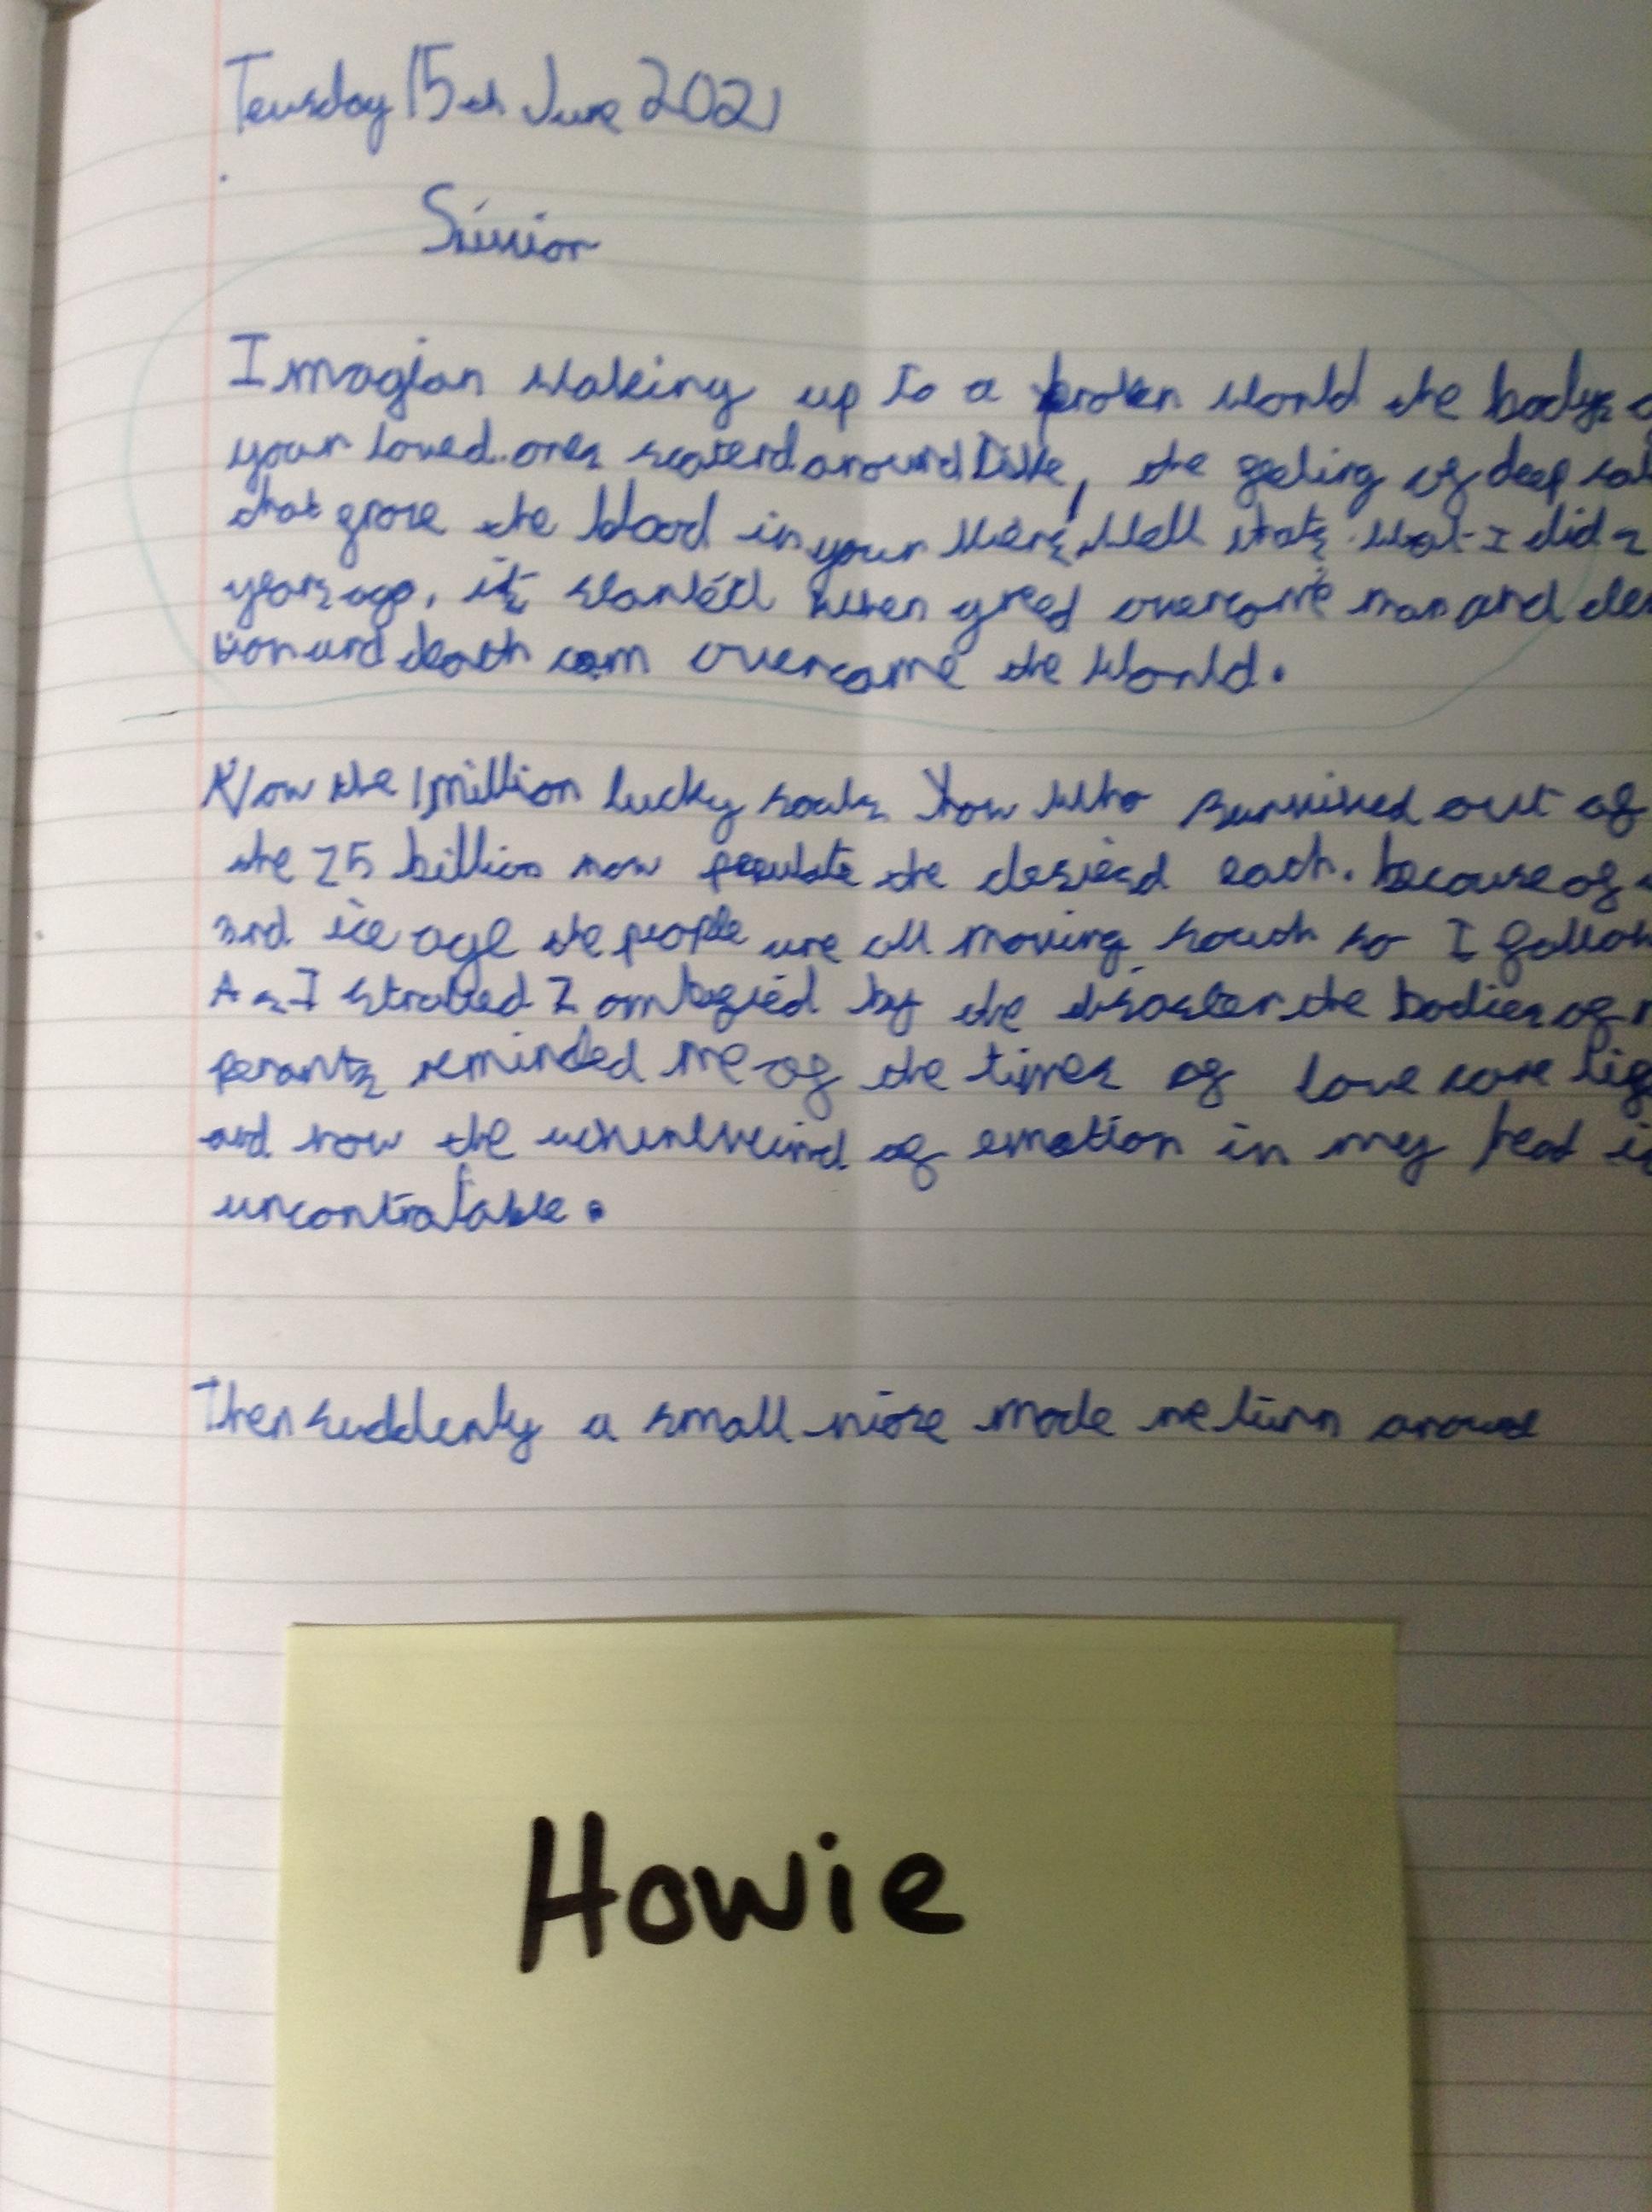 Teusday 15th June 2021
Imagian waking up to a broken world the bodys
your loved ones scaterd around like, the feeling of deep
that froze the blood in your Well thats what I did
years ago, it started when greed overcome man and
tion and death com overcame the world.
Now the 1 million lucky souls who survived out of
the 7.5 billion now populate the each. because of
3rd ice age the people are all moving south so I
As I by the disaster the bodies of
perants reminded me of the times of love care
and now the of emotion in my head
uncontralable.
Then suddenly a small niose made me turn around
Howie